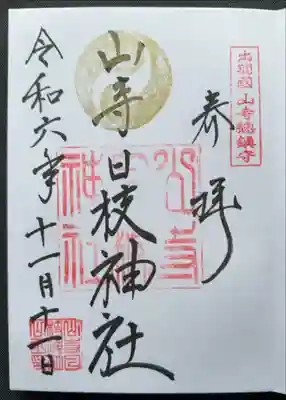 出羽國 山寺總鎮守
奉拝
山寺 日枝神社
山寺
神社
令和六年十一月十一日